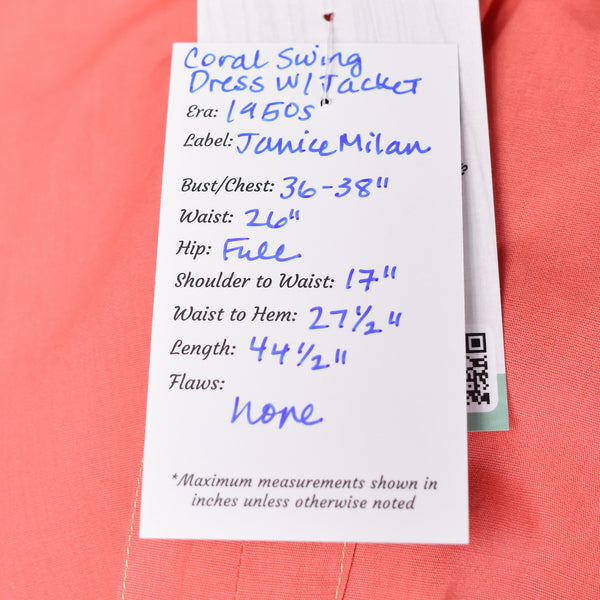 Coral Swing
Dress W/ Jacket
Era: 1950s
Label: Janice Milan
Bust/Chest: 36-38"
Waist: 26"
Hip: Full
Shoulder to Waist: 17"
Waist to Hem: 27 1/2"
Length: 44 1/2"
Flaws:
None
*Maximum measurements shown in
inches unless otherwise noted